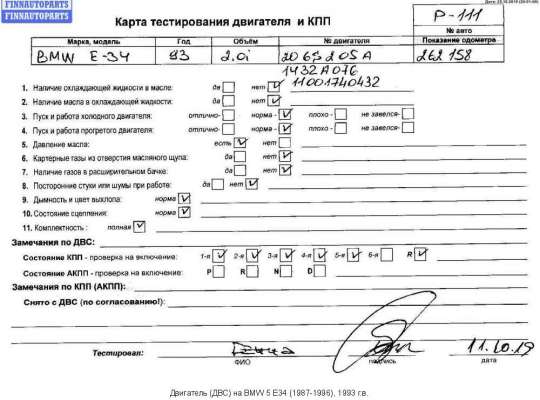 FINNAUTOPARTS
FINNAUTOPARTS
Карта тестирования двигателя и КПП
P-111
№ авто
Марка, модель Год Объём № двигателя Показание одометра
BMW E-34 93 2.0i 206S205A 262158
1432A076
11001740432
1. Наличие охлаждающей жидкости в масле: да нет
2. Наличие масла в охлаждающей жидкости: да нет
3. Пуск и работа холодного двигателя: отлично- норма - плохо- не завелся-
4. Пуск и работа прогретого двигателя: отлично- норма - плохо- не завелся-
5. Давление масла: есть нет
6. Картерные газы из отверстия масляного щупа: да нет
7. Наличие газов в расширительном бачке: да нет
8. Посторонние стуки или шумы при работе: да нет
9. Дымность и цвет выхлопа: норма
10. Состояние сцепления: норма
11. Комплектность : полная
Замечания по ДВС:
Состояние КПП - проверка на включение: 1-я 2-я 3-я 4-я 5-я 6-я R
Состояние АКПП - проверка на включение: P R N D
Замечания по КПП (АКПП):
Снято с ДВС (по согласованию!):
Тестировал: 11.10.19
ФИО подпись дата
Двигатель (ДВС) на BMW 5 E34 (1987-1996), 1993 г.в.